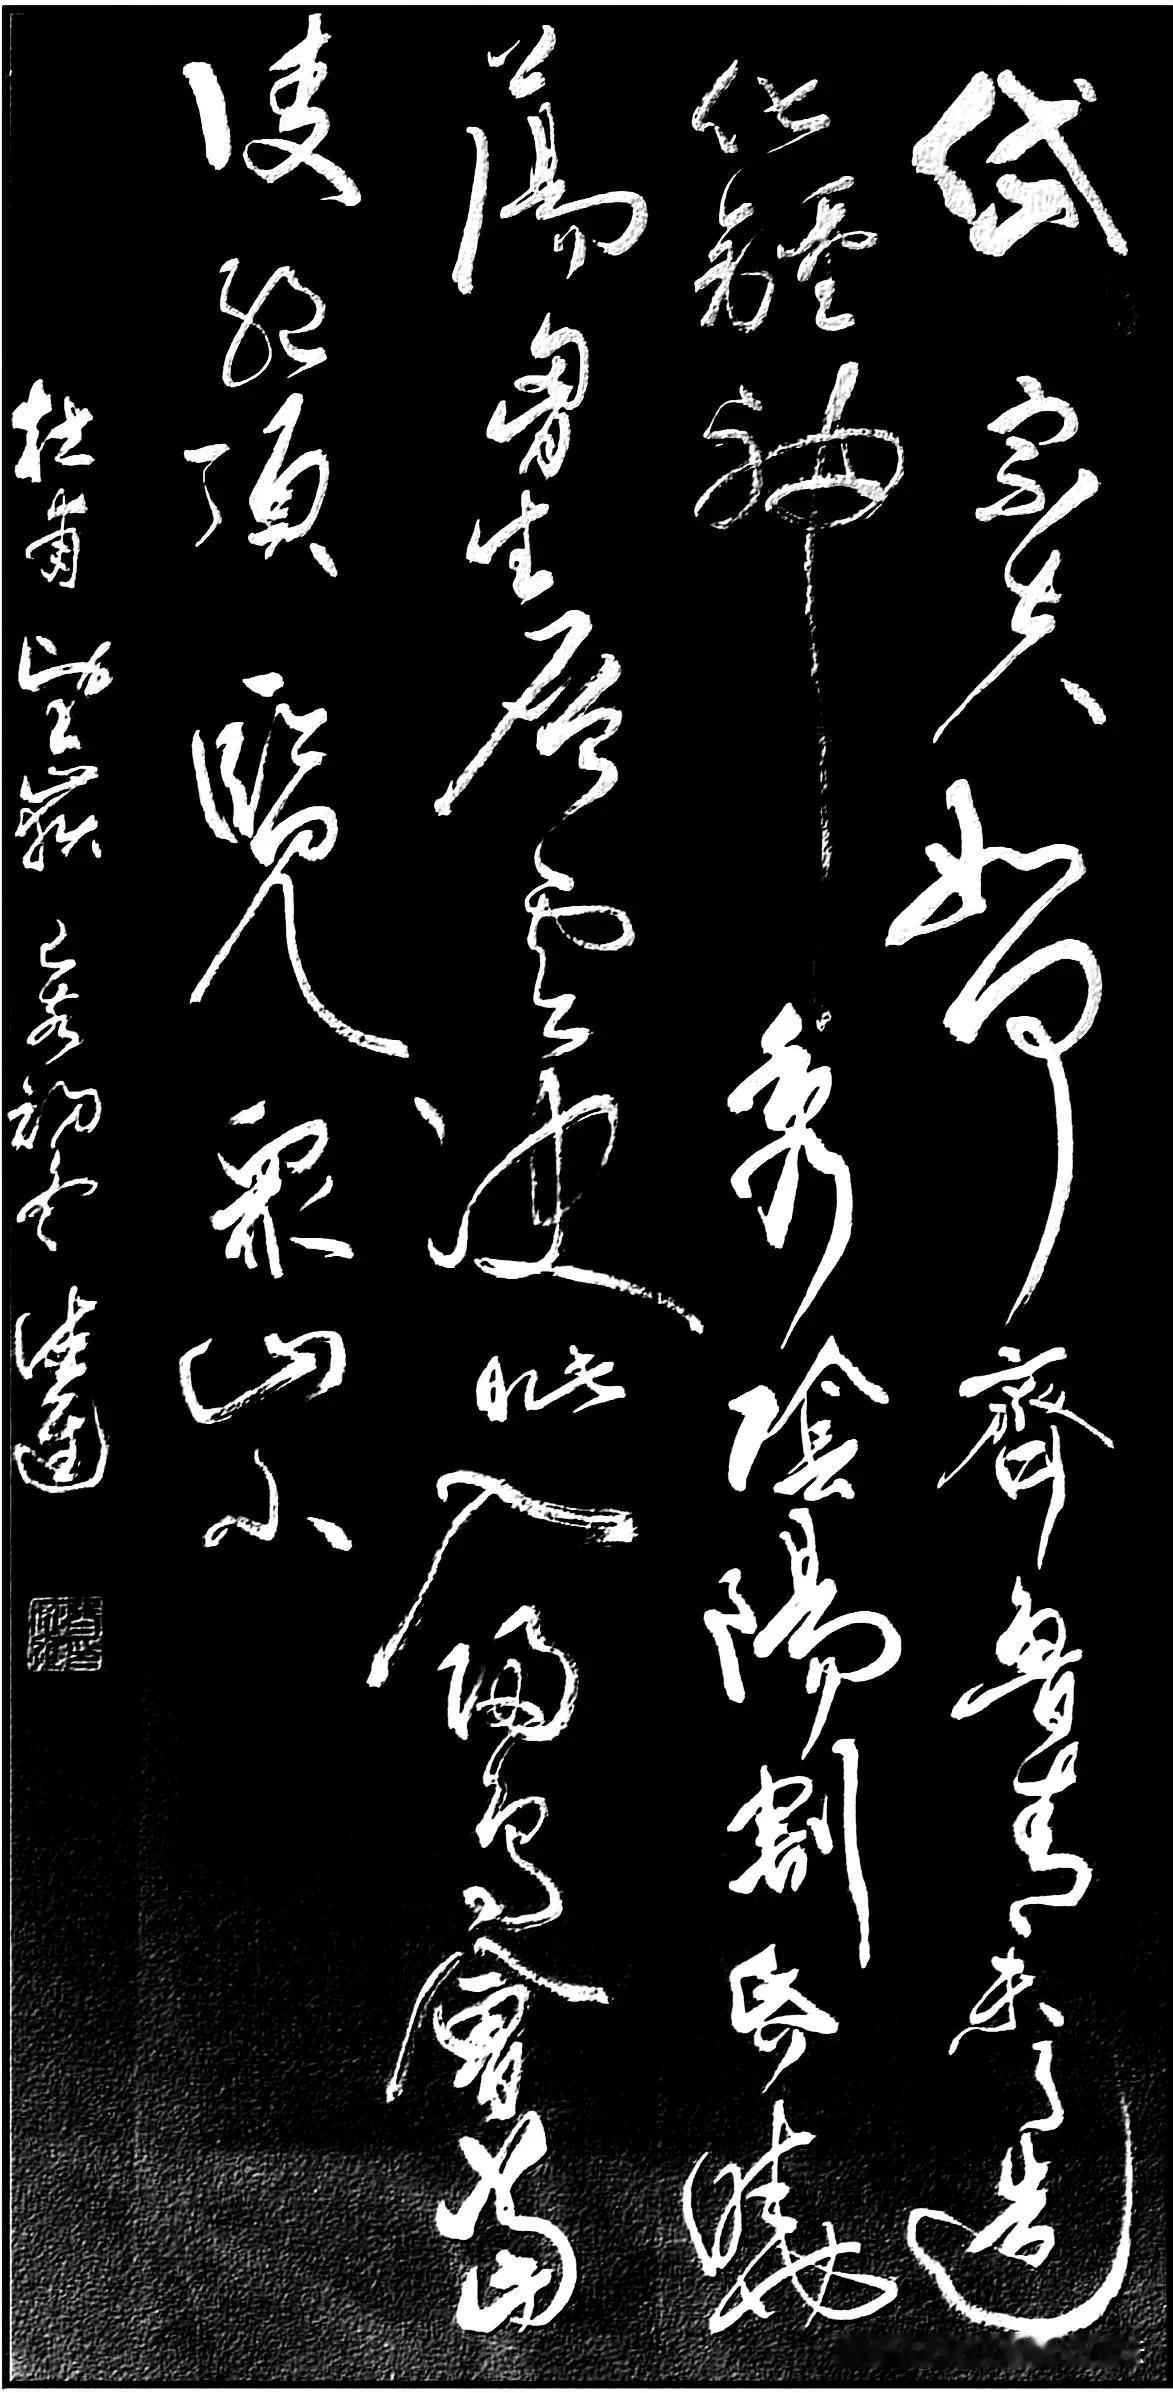 岱宗夫如何齊魯青未了造
化鍾神秀陰陽割昏曉
蕩胸生層雲決眥入歸鳥會當
凌絕頂一覽眾山小
杜甫望嶽 己亥初冬